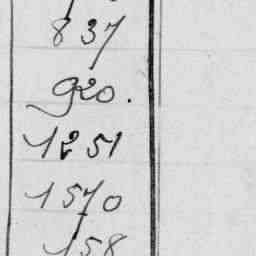 837
920.
1251
1570
158